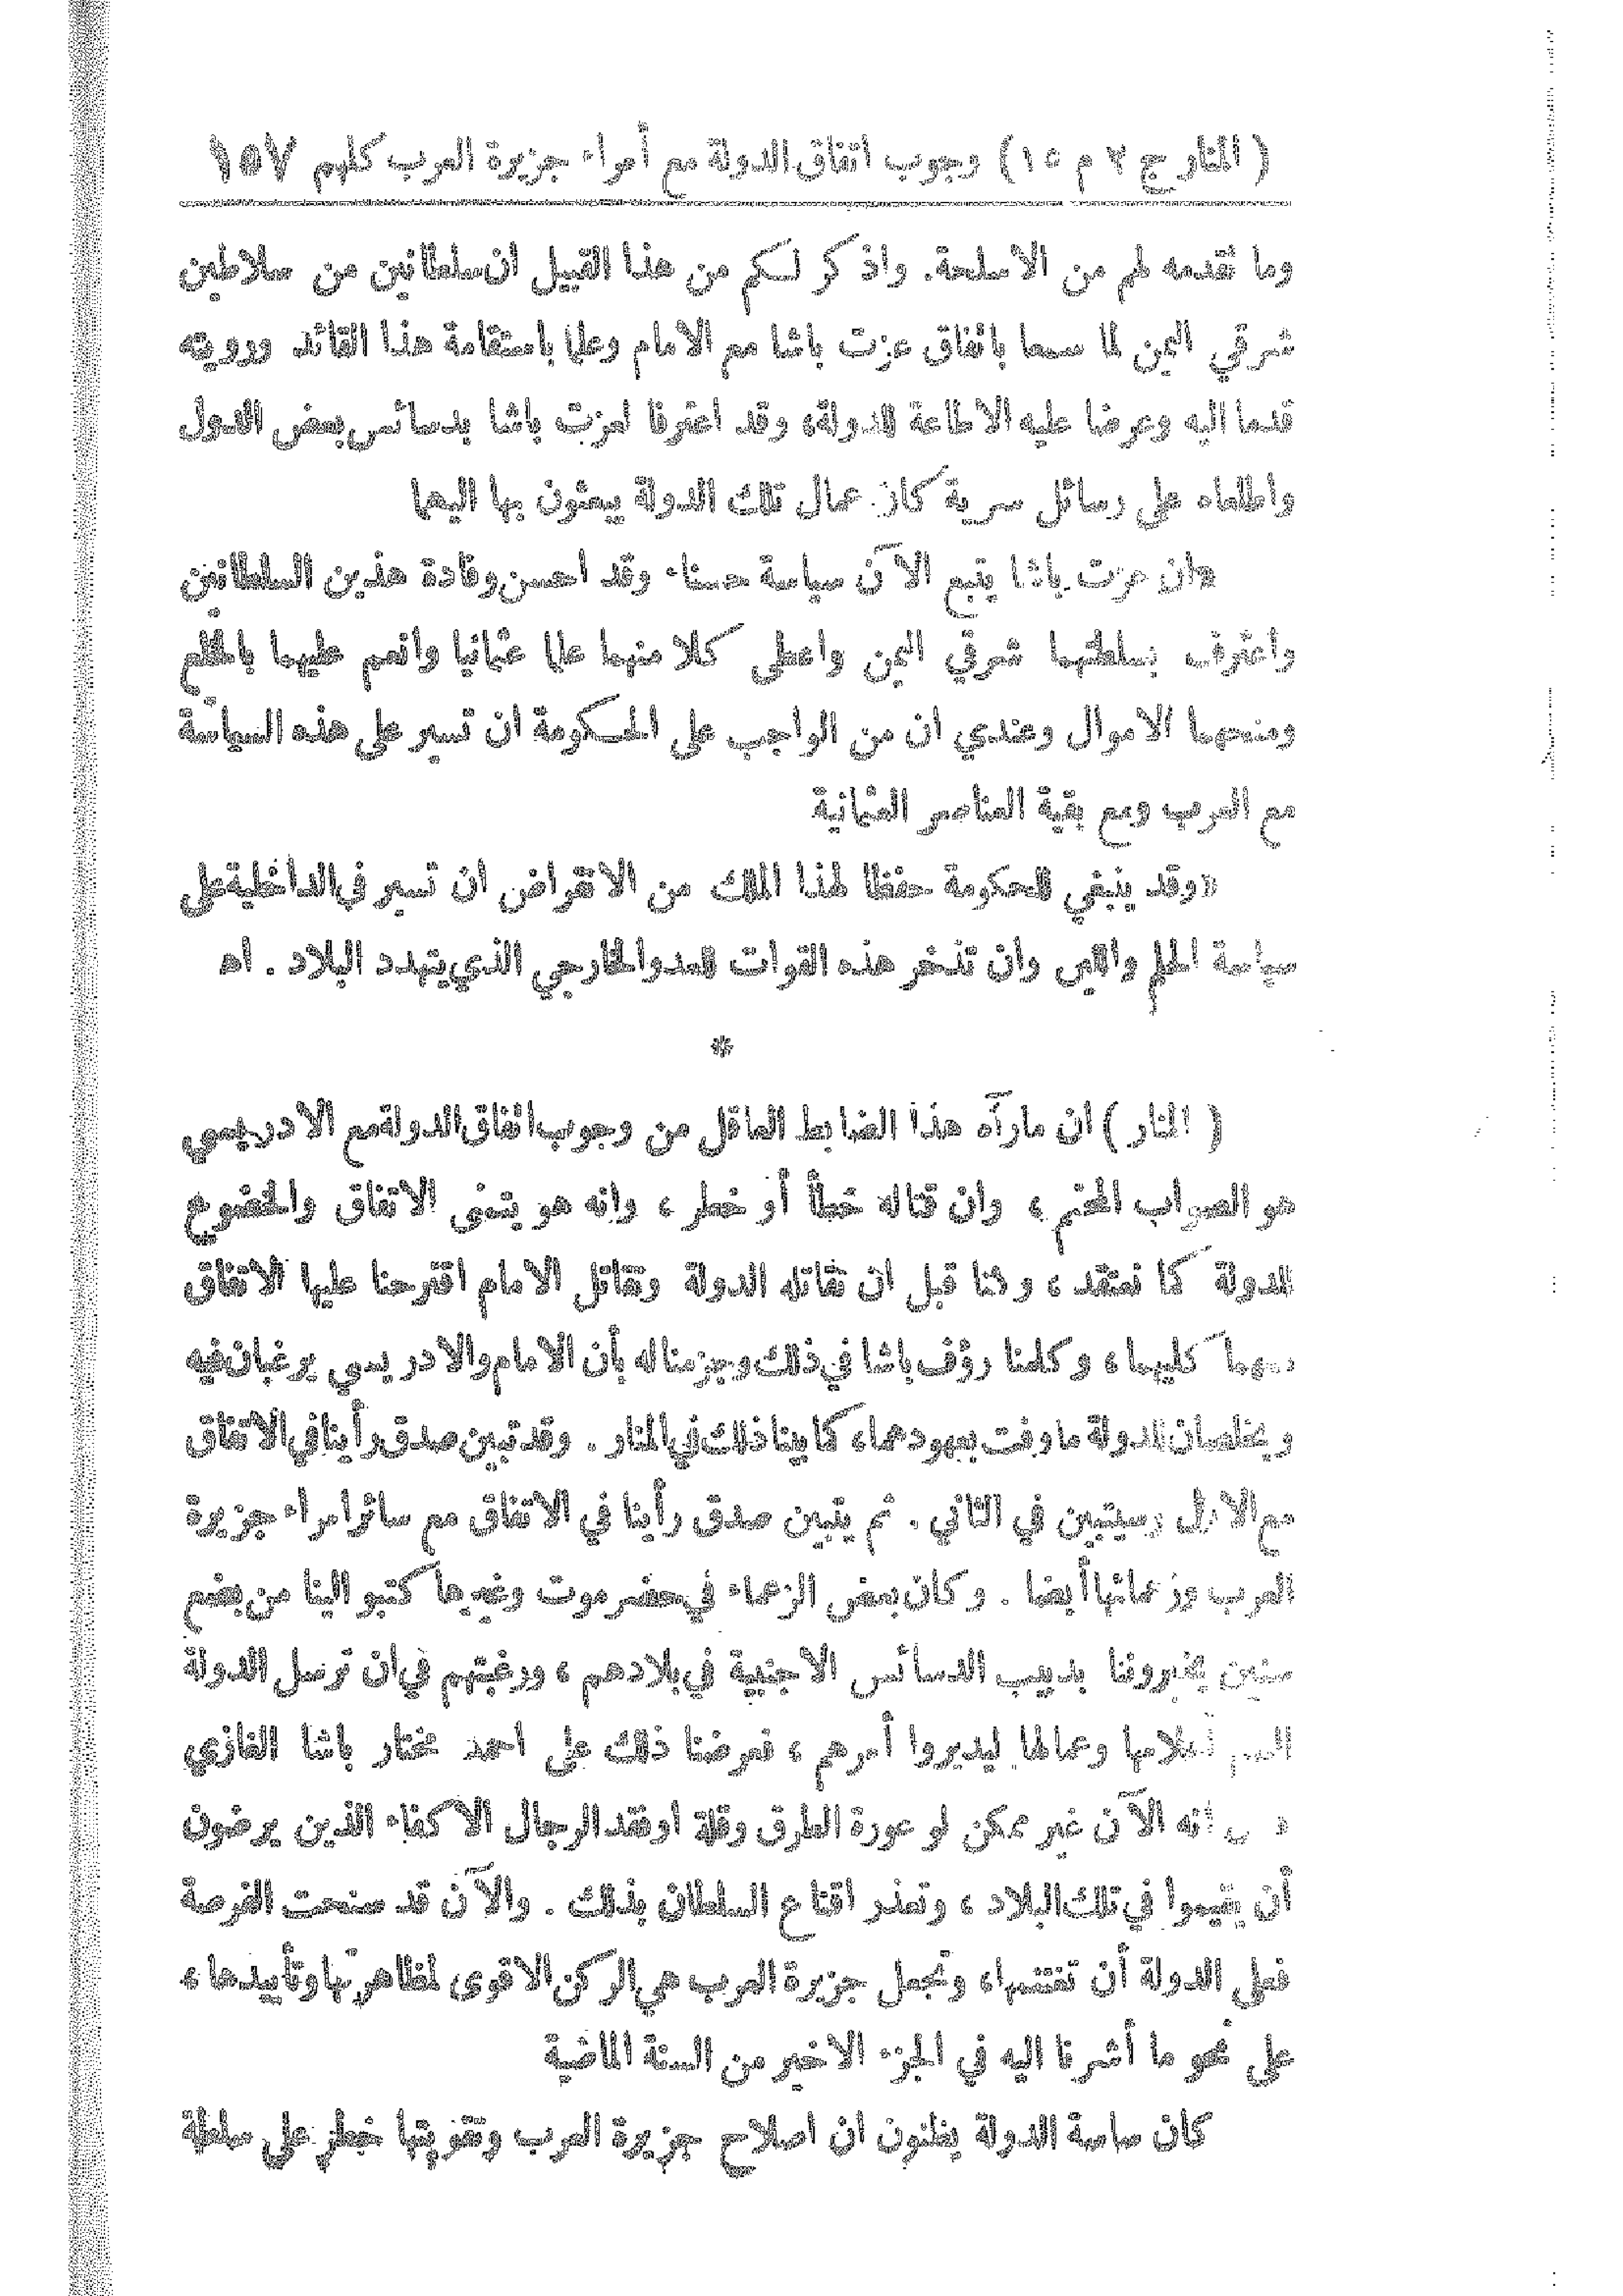 ( المنار ج ٢ م ١٥ ) وجوب اتفاق الدولة مع أمراء جزيرة العرب كلهم ١٥٧
وما تقدمه لهم من الاسلحة. واذكر لكم من هذا القبيل ان سلطانين من سلاطين
شرقي اليمن لما سمعا باتفاق عزت باشا مع الامام وعلما باستقامة هذا القائد ورويته
قدما اليه وعرضا عليه الاطاعة للدولة، وقد اعترفا لعزت باشا بدسائس بعض الدول
واطلعاه على رسائل سرية كان عمال تلك الدولة يبعثون بها اليهما
«ان عزت باشا يتبع الآن سياسة حسناء وقد احسن وفادة هذين السلطانين
واعترف بسلطتهما شرقي اليمن واعطى كلا منهما علما عثمانيا وانعم عليهما بالخلع
ومنحهما الاموال وعندي ان من الواجب على الحكومة ان تسير على هذه السياسة
مع العرب ومع بقية العناصر العثمانية
«وقد ينبغي للحكومة حفظا لهذا الملك من الانقراض ان تسير في الداخلية على
سياسة الحلم واللين وان تذخر هذه القوات للعدو الخارجي الذي يتهدد البلاد . اه
*
( المنار ) ان ما رآه هذا الضابط العاقل من وجوب اتفاق الدولة مع الادريسي
هو الصواب المحتم ، وان قتاله خطأ أو خطر ، وانه هو يتمنى الاتفاق والخضوع
للدولة كما نعتقد ، وكنا قبل ان تقاتله الدولة وتقاتل الامام اقترحنا عليها الاتفاق
معهما كليهما ، وكلمنا رؤف باشا في ذلك وجزمنا له بأن الامام والادريسي يرغبان فيه
ويخلصان للدولة ما وفت بعهودهما، كما بينا ذلك في المنار . وقد تبين صدق رأينا في الاتفاق
مع الاول وسيتبين في الثاني . ثم يتبين صدق رأينا في الاتفاق مع سائر امراء جزيرة
العرب وزعمائها أيضا . وكان بعض الزعماء في حضرموت وغيرها كتبو الينا من بضع
سنين يخبروننا بدبيب الدسائس الاجنبية في بلادهم ، ورغبتهم في ان ترسل الدولة
اليهم أعلامها وعمالها ليديروا أمرهم ، فعرضنا ذلك على احمد مختار باشا الغازي
انه الآن غير ممكن لوعورة الطرق وقلة اوفقد الرجال الاكفاء الذين يرضون
أن يقيموا في تلك البلاد ، وتعذر اقناع السلطان بذلك . والآن قد سنحت الفرصة
فعلى الدولة أن تغتنمها، وتجعل جزيرة العرب هي الركن الاقوى لمظاهرتها وتأييدها ،
على نحو ما أشرنا اليه في الجزء الاخير من السنة الماضية
كان ساسة الدولة يظنون ان اصلاح جزيرة العرب وتقويتها خطر على سلطة